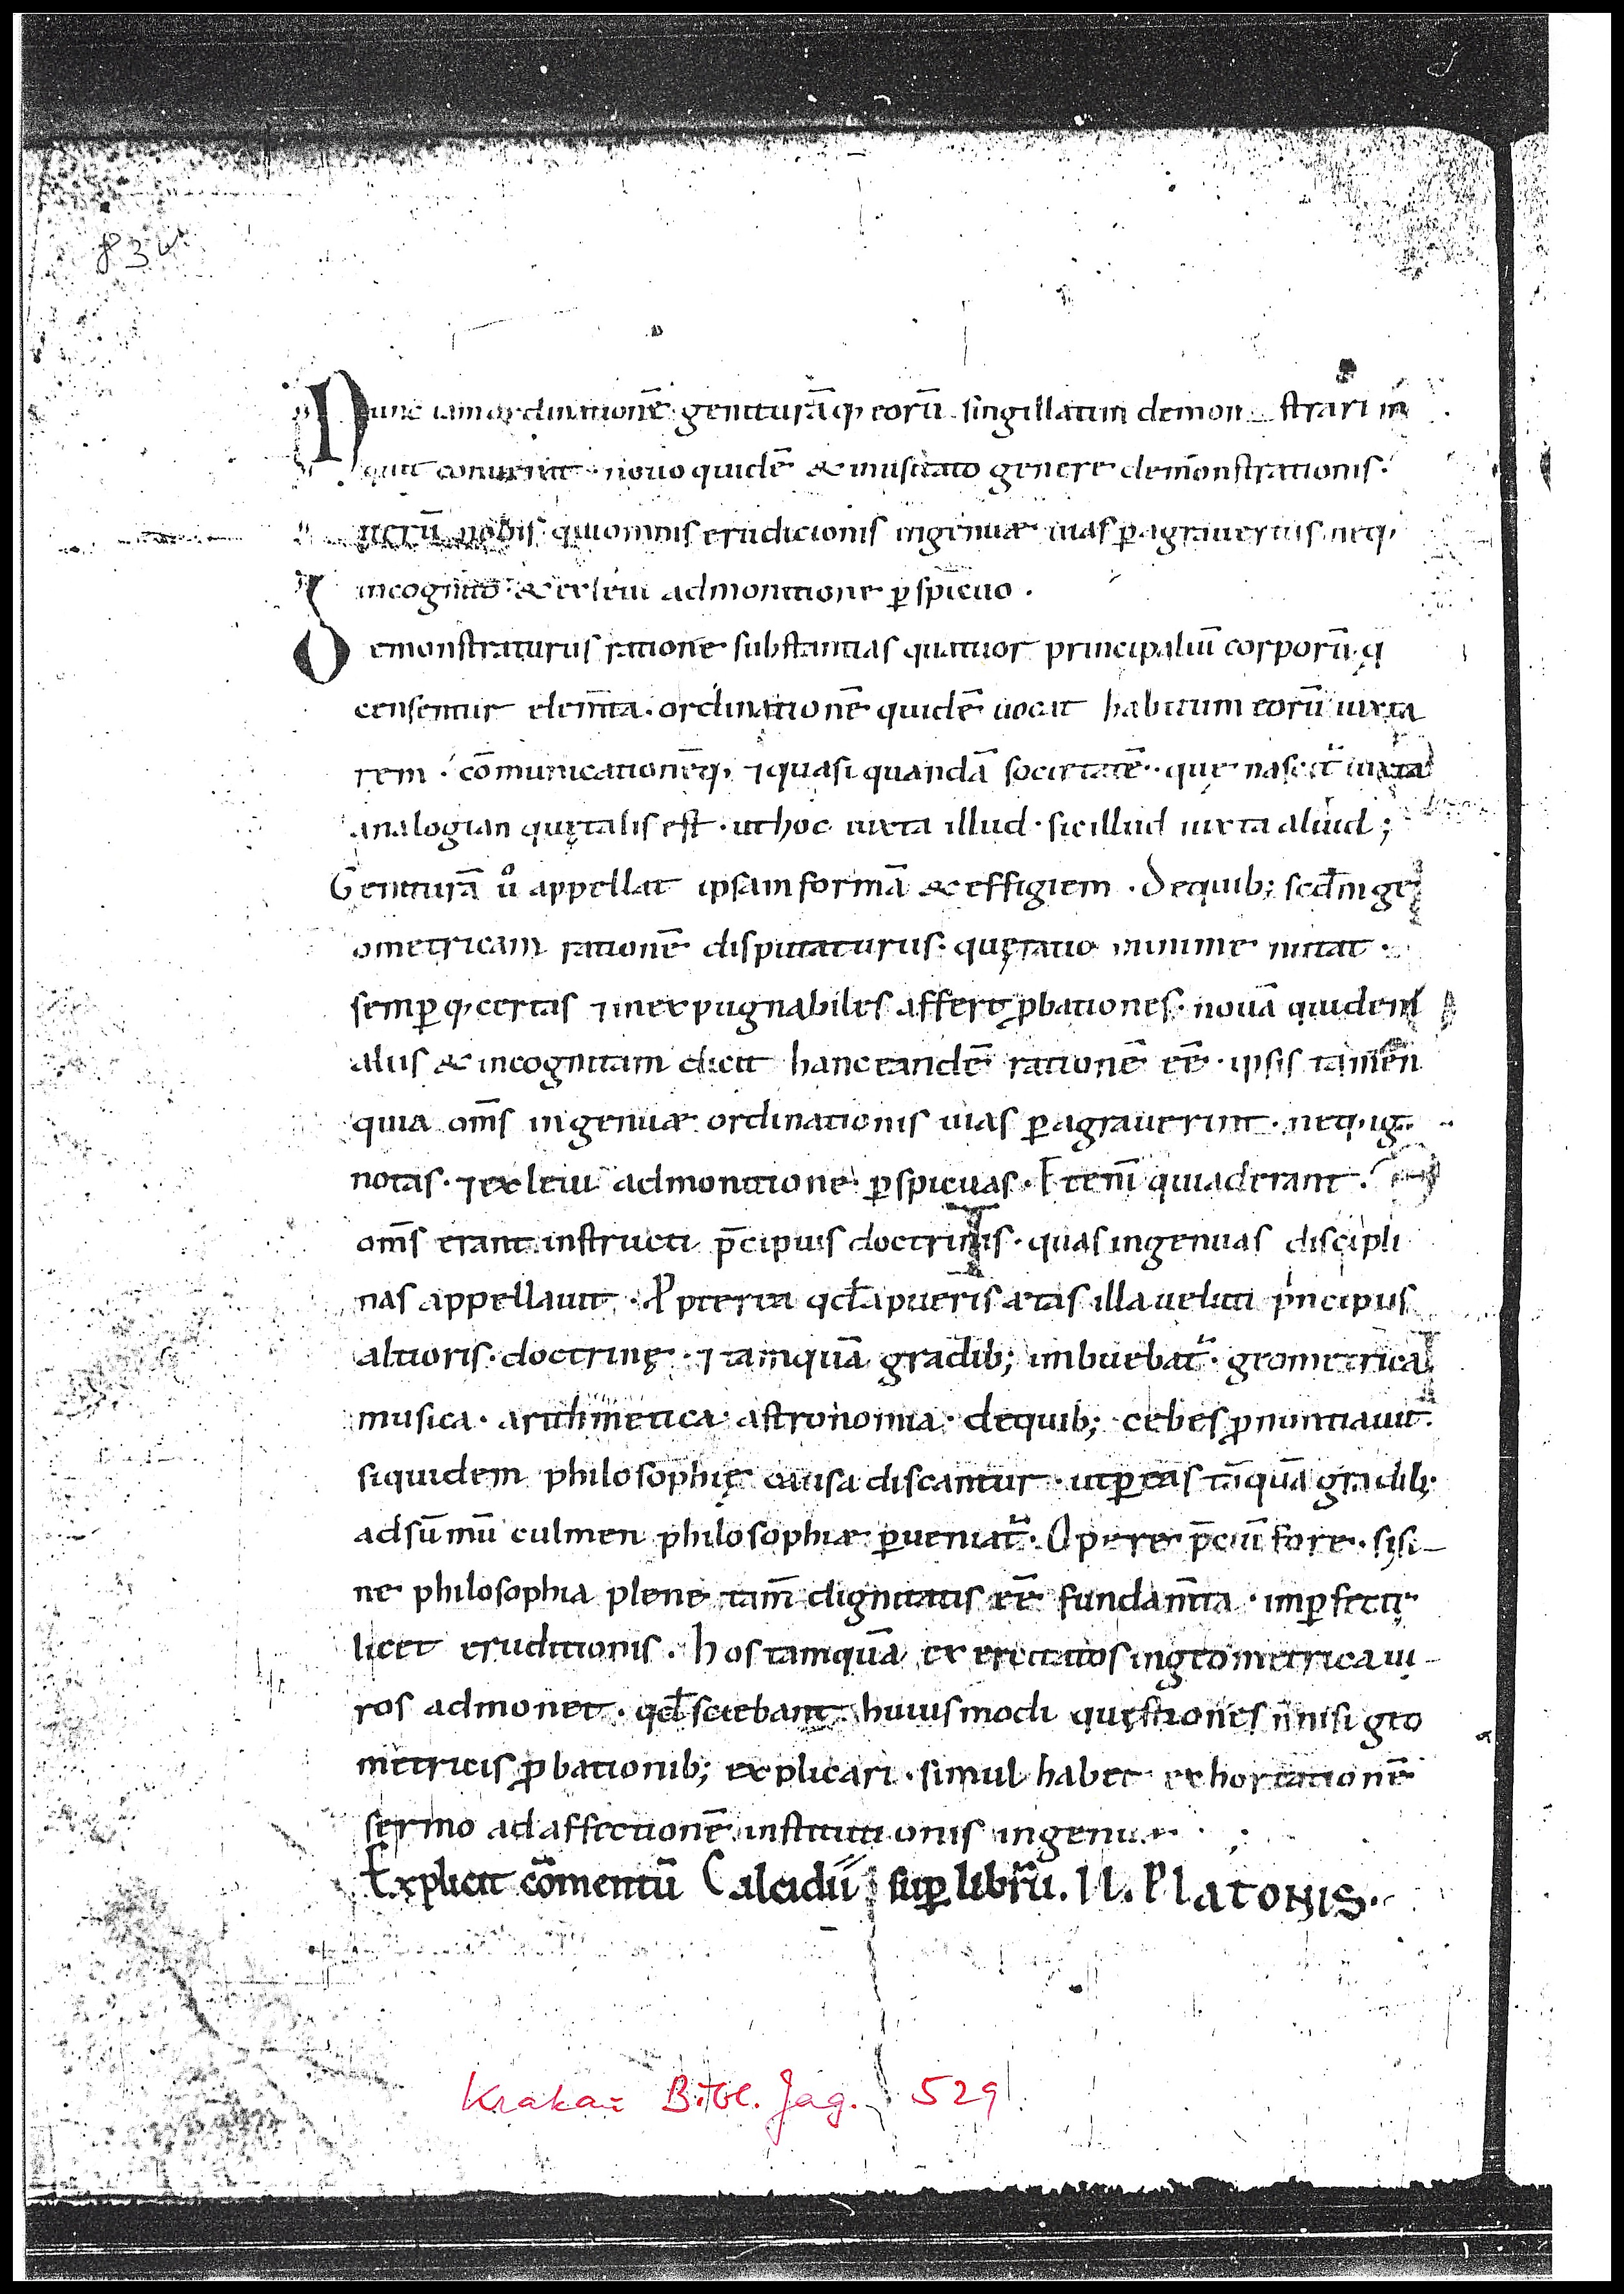 83v
Nunc iam ordinationē geniturāq; eorū singillatim demon strari in
quit conueniet · nouo quidē & inusitato genere demōnstrationis ·
uerū nobis qui omnis erudicionis ingenuæ uias ꝑagraueritis neq;
incognito · & ex leui admonitione ꝑspicuo .
Demonstraturus ratione substantias quatuor principaliū corporū · q
censentur elem̄ta · ordinationē quidē uocat habitum eorū iuxta
rem · cōmunicationēq; ⁊ quasi quandā societatē · que nascit᷑ iuxta
analogian quę talis est · ut hoc iuxta illud · sic illud iuxta aliud ;
Geniturā u̾o appellat ipsam formā & effigiem . De quib; scd̄m ge
ometricam rationē disputaturus · quę ratio minime nutat ·
semꝑq; certas ⁊ inexpugnabiles affert ꝓbationes · nouā quidem
aliis & incognitam dicit hanc eandē rationē eē · ipsis tamen
quia om̄s ingenuæ ordinationis uias ꝑagrauerint · neq; ig
notas · ⁊ ex leui admonitione ꝑspicuas . Etenī qui aderant .
om̄s erant instructi p̄cipuis doctrinis · quas ingenuas discipli
nas appellauit · Ꝓpterea qd̄ a pueris ætas illa ueluti pⁱncipiis
altioris · doctrinę · ⁊ tamquā gradib; imbuebat᷑ · geometrica
musica · arithmetica · astronomia · de quib; cebes ꝓnuntiauit .
siquidem philosophię causa discantur · ut ꝑ eas tāquā gradib;
ad sūmū culmen philosophiæ ꝑueniat᷑ . Opere p̄ciū fore · si si-
ne philosophia plene tam̄ dignitatis eē fundam̄ta · imꝑfectę
licet eruditionis . hos tamquā exercitatos in geometrica ui-
ros admonet · qd̄ sciebant huiusmodi quęstiones n̄ nisi geo
metricis ꝓbationib; explicari · simul habet exhortationē
sermo ad affectionē institutionis ingenuæ ;
Explicit cōmentū Calcidii sup̱ librū . II . Platonis .
Krakau Bibl. Jag. 529